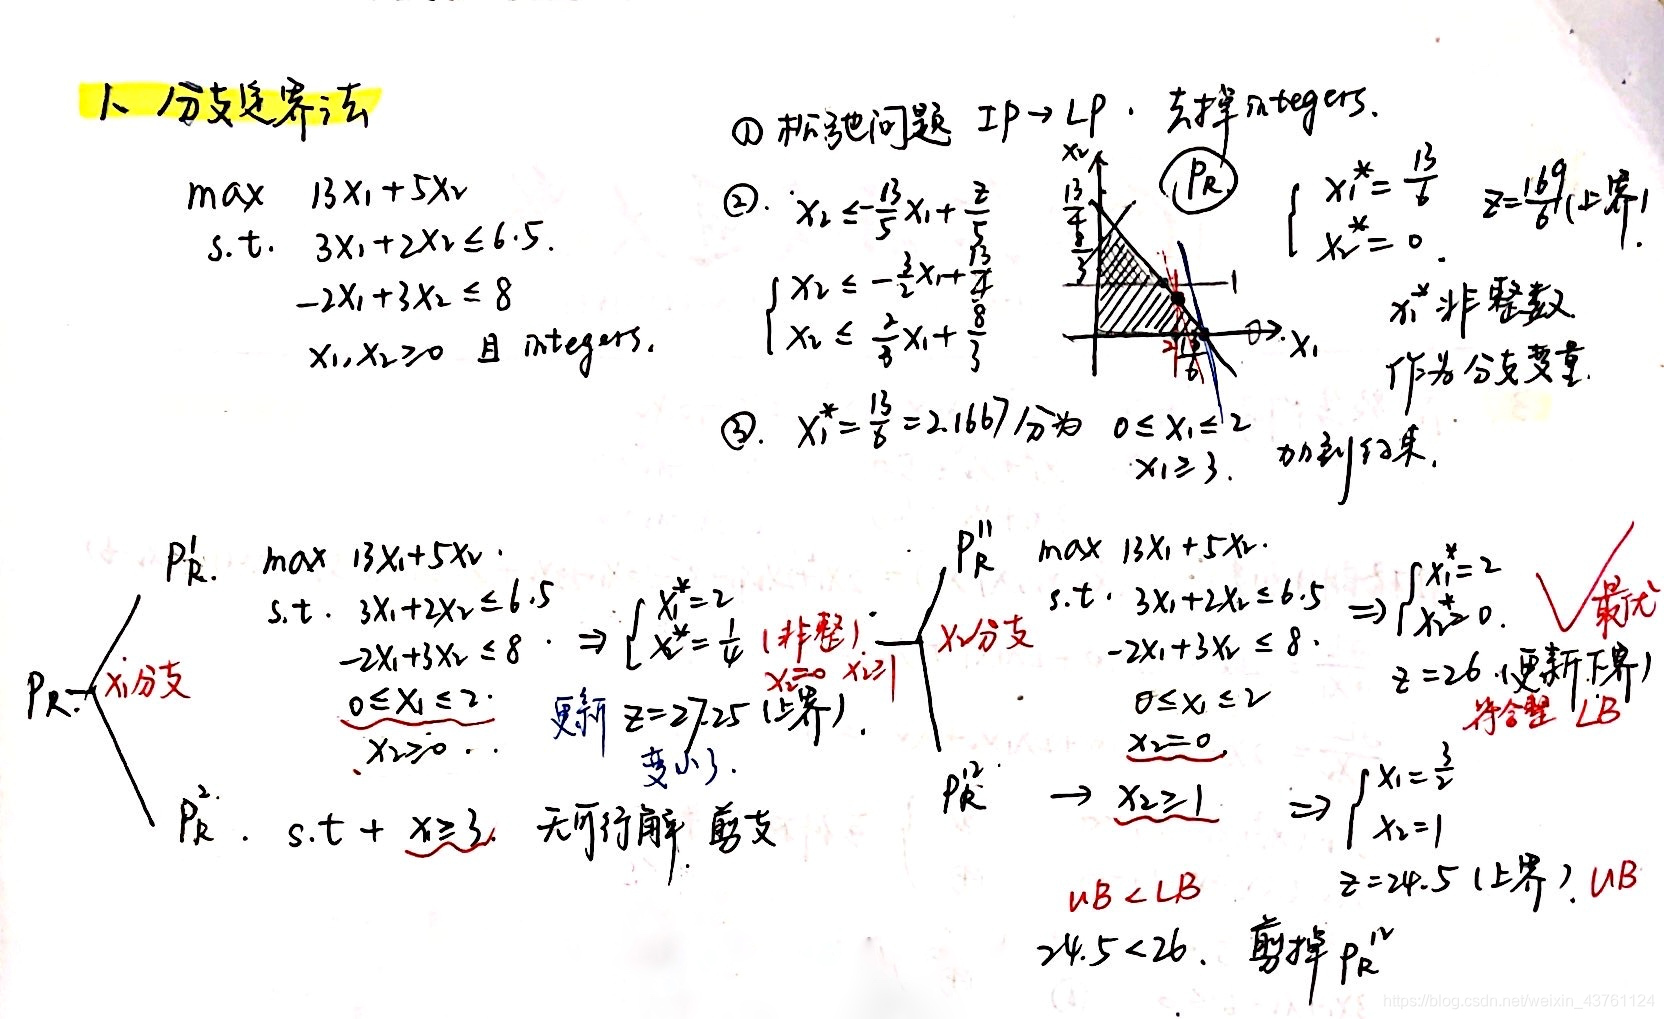 1、分支定界法
max 13x₁+5x₂
s.t. 3x₁+2x₂≤6.5.
-2x₁+3x₂≤8
x₁,x₂≥0 且 integers.
① 松弛问题 IP→LP. 去掉integers.
②. x₂≤-13/5x₁+z/5
{ x₂≤-3/2x₁+13/4
x₂≤2/3x₁+8/3
x₂
13/4
8/3
1
2
13/6
0
x₁
P_R
{ x₁*=13/6
x₂*=0.
z=169/6(上界)
x₁*非整数
作为分支变量.
③. x₁*=13/6=2.1667分为 0≤x₁≤2
x₁≥3. 加到约束.
P_R.
x₁分支
P_R^1. max 13x₁+5x₂.
s.t. 3x₁+2x₂≤6.5
-2x₁+3x₂≤8.
0≤x₁≤2.
x₂≥0..
⇒{ x₁*=2
x₂*=1/4
(非整).
x₂=0 x₂≥1
更新 z=27.25(上界).
变小了.
P_R^2. s.t + x₁≥3. 无可行解. 剪支
x₂分支
P_R^11 max 13x₁+5x₂.
s.t. 3x₁+2x₂≤6.5
-2x₁+3x₂≤8.
0≤x₁≤2
x₂=0.
⇒{ x₁*=2
x₂*=0.
最优
z=26.(更新下界)
符合整 LB
P_R^12 → x₂≥1
⇒{ x₁=3/2
x₂=1
z=24.5(上界). UB
UB<LB
24.5<26. 剪掉 P_R^12
https://blog.csdn.net/weixin_43761124